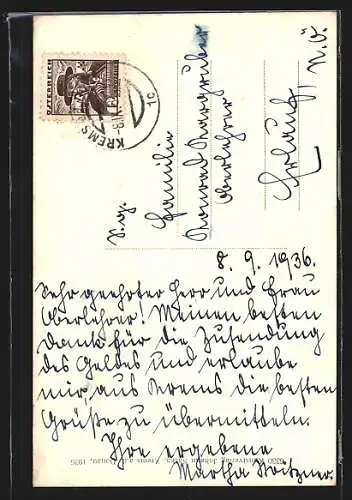 ÖSTERREICH
KREMS
1c
S.g.
Familie
Konrad
Oberlehrer
Erlauf, N.Ö.
8. 9. 1936.
Sehr geehrter Herr und Frau
Oberlehrer! Meinen besten
Dank für die Zusendung
des Geldes und erlaube
mir, aus Krems die besten
Grüße zu übermitteln.
Ihre ergebene
Martha
Krems a. d. Donau, 1936